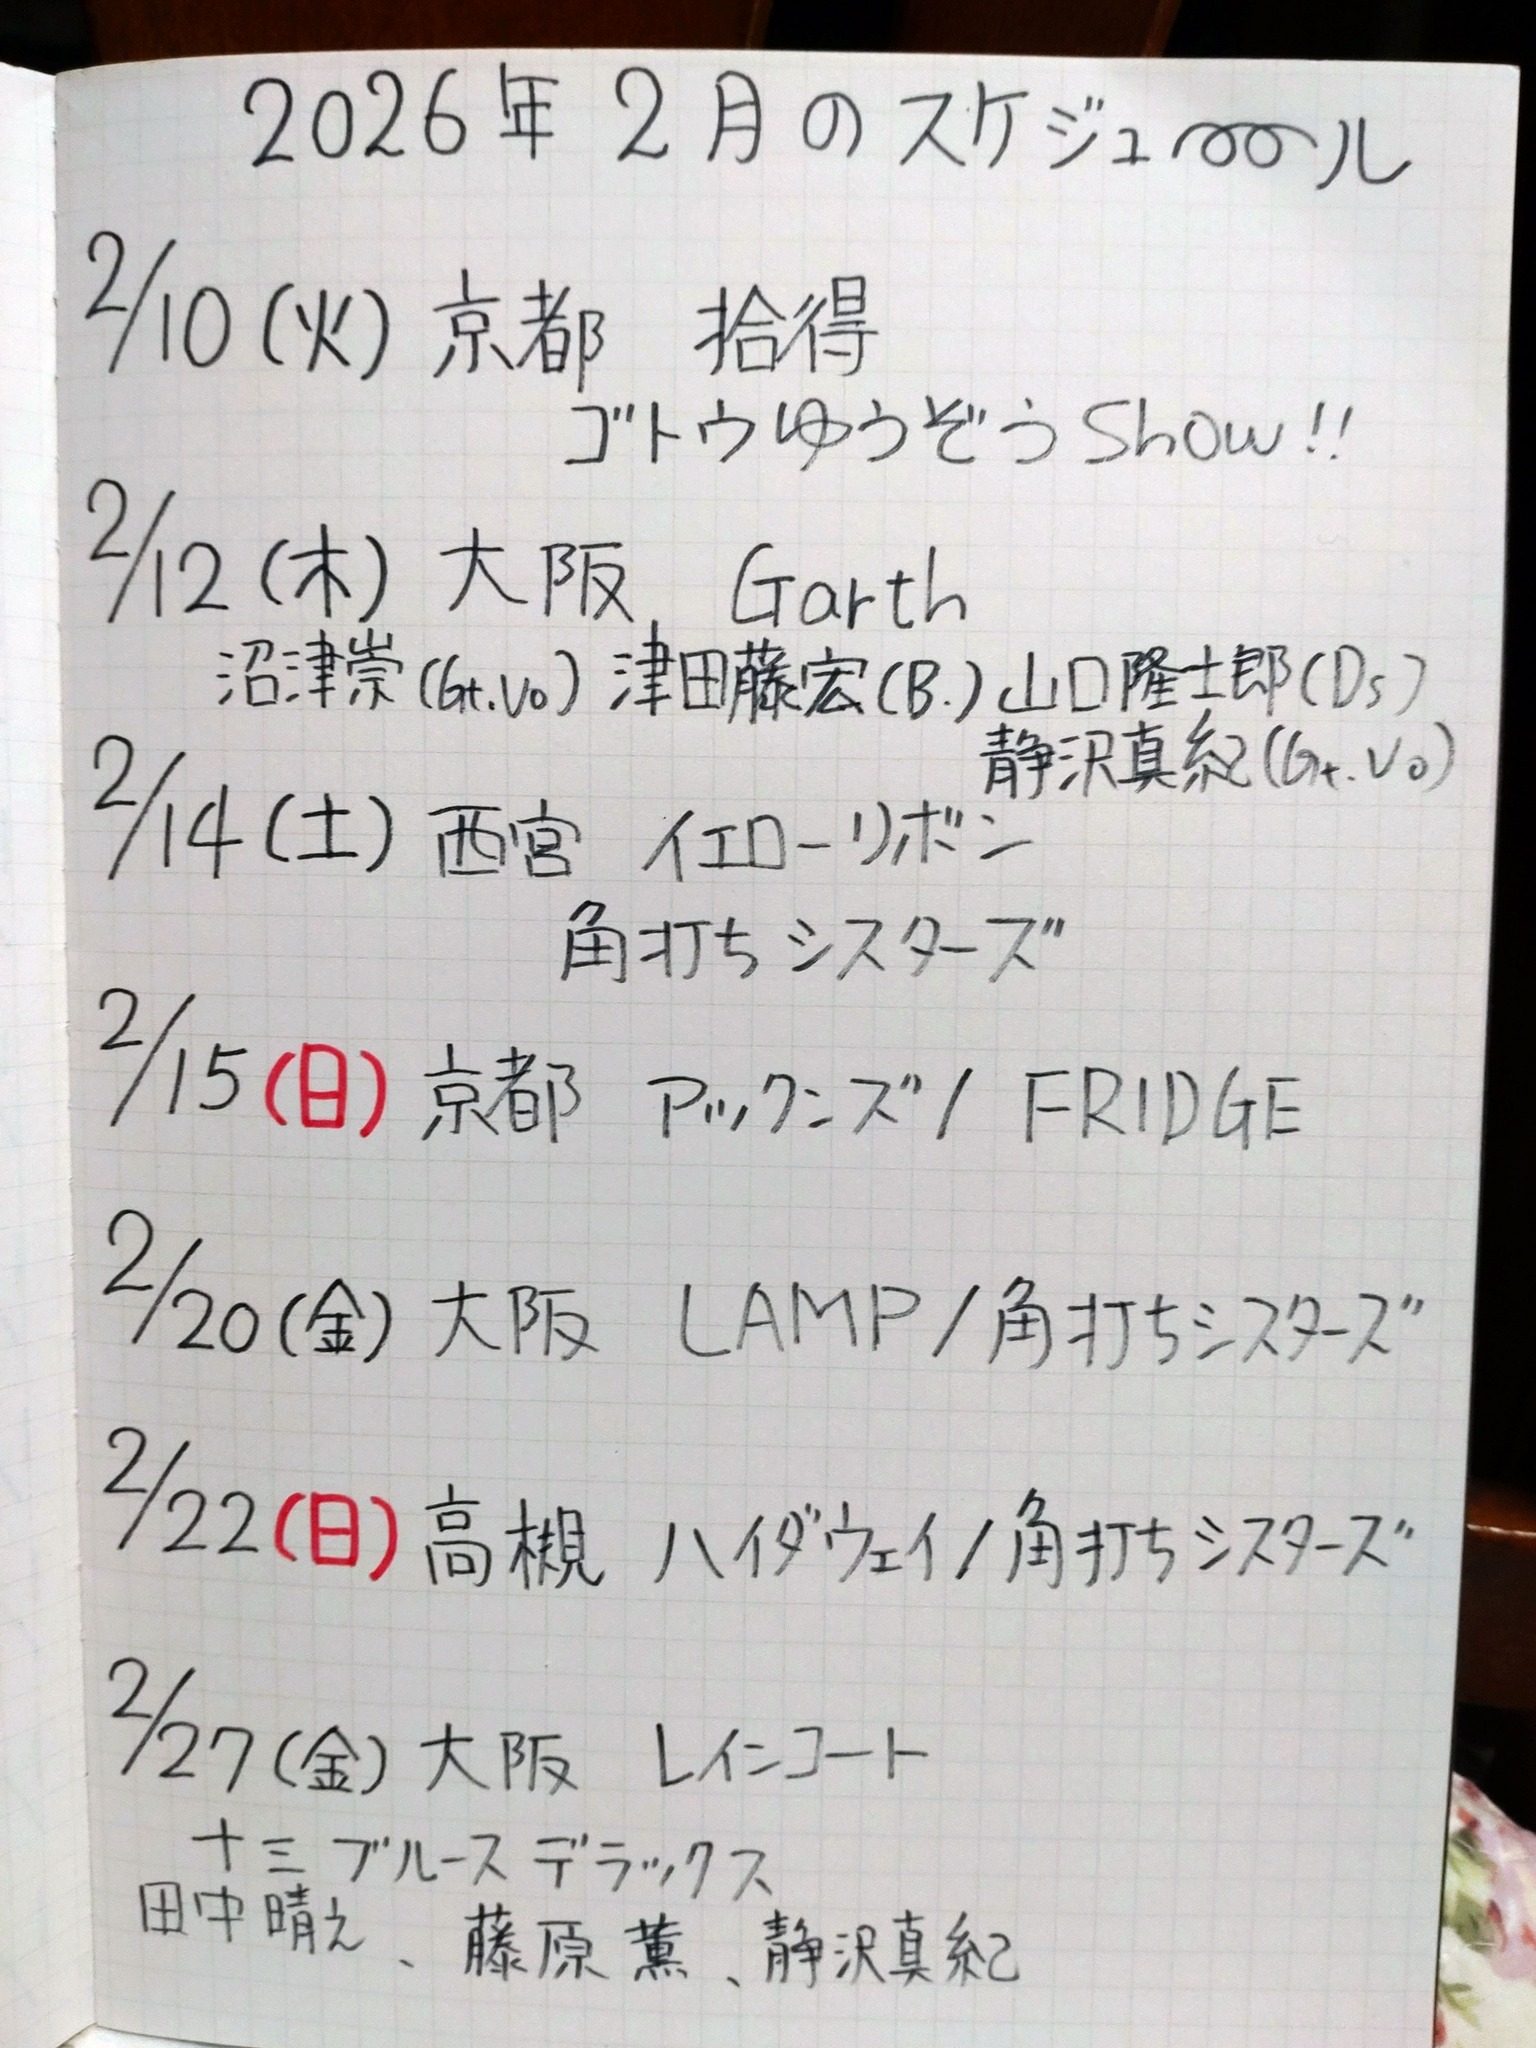 2026年2月のスケジュール
2/10(火)京都 拾得
ゴトウゆうぞうShow!!
2/12(木)大阪 Garth
沼津崇(Gt.Vo)津田藤宏(B.)山口隆士郎(Ds)
静沢真紀(Gt.Vo)
2/14(土)西宮 イエローリボン
角打ちシスターズ
2/15(日)京都 アックンズ/FRIDGE
2/20(金)大阪 LAMP/角打ちシスターズ
2/22(日)高槻 ハイダウェイ/角打ちシスターズ
2/27(金)大阪 レインコート
十三ブルースデラックス
田中晴え、藤原薫、静沢真紀